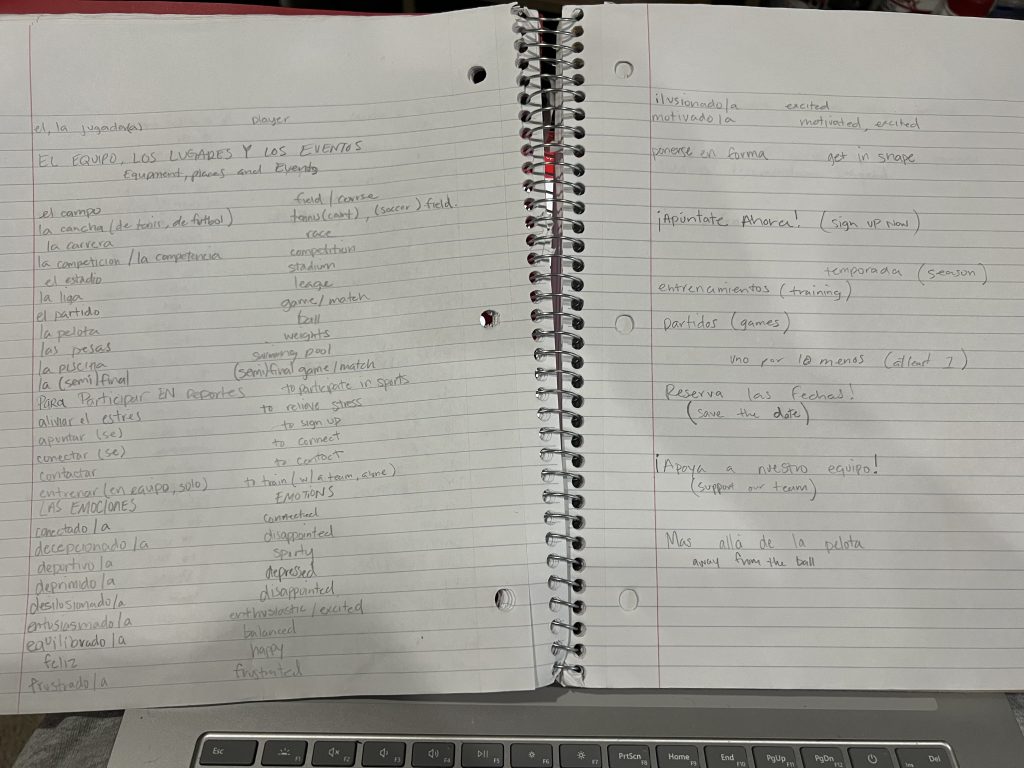 el, la jugador(a) player
EL EQUIPO, LOS LUGARES Y LOS EVENTOS
Equipment, places and Events
el campo field / course
la cancha (de tenis, de futbol) tennis (court), (soccer) field.
la carrera race
la competicion / la competencia competition
el estadio stadium
la liga league
el partido game/match
la pelota ball
las pesas weights
la piscina swimming pool
la (semi)final (semi)final game/match
PARA PARTICIPAR EN DEPORTES to participate in sports
aliviar el estres to relieve stress
apuntar (se) to sign up
conectar (se) to connect
contactar to contact
entrenar (en equipo, solo) to train (w/ a team, alone)
LAS EMOCIONES EMOTIONS
conectado/a connected
decepcionado/a disappointed
deportivo/a sporty
deprimido/a depressed
desilosionado/a disappointed
entusiasmado/a enthusiastic / excited
equilibrado/a balanced
feliz happy
frustrado/a frustrated
ilusionado/a excited
motivado/a motivated, excited
ponerse en forma get in shape
¡Apúntate Ahora! (sign up now)
temporada (season)
entrenamientos (training)
partidos (games)
uno por lo menos (atleast 1)
Reserva las Fechas!
(save the date)
¡Apoya a nuestro equipo!
(support our team)
Mas allá de la pelota
away from the ball
Esc F1 F2 F3 F4 F5 F6 F7 PrtScn F8 Home F9 End F10 PgUp F11 PgDn F12 Ins Del